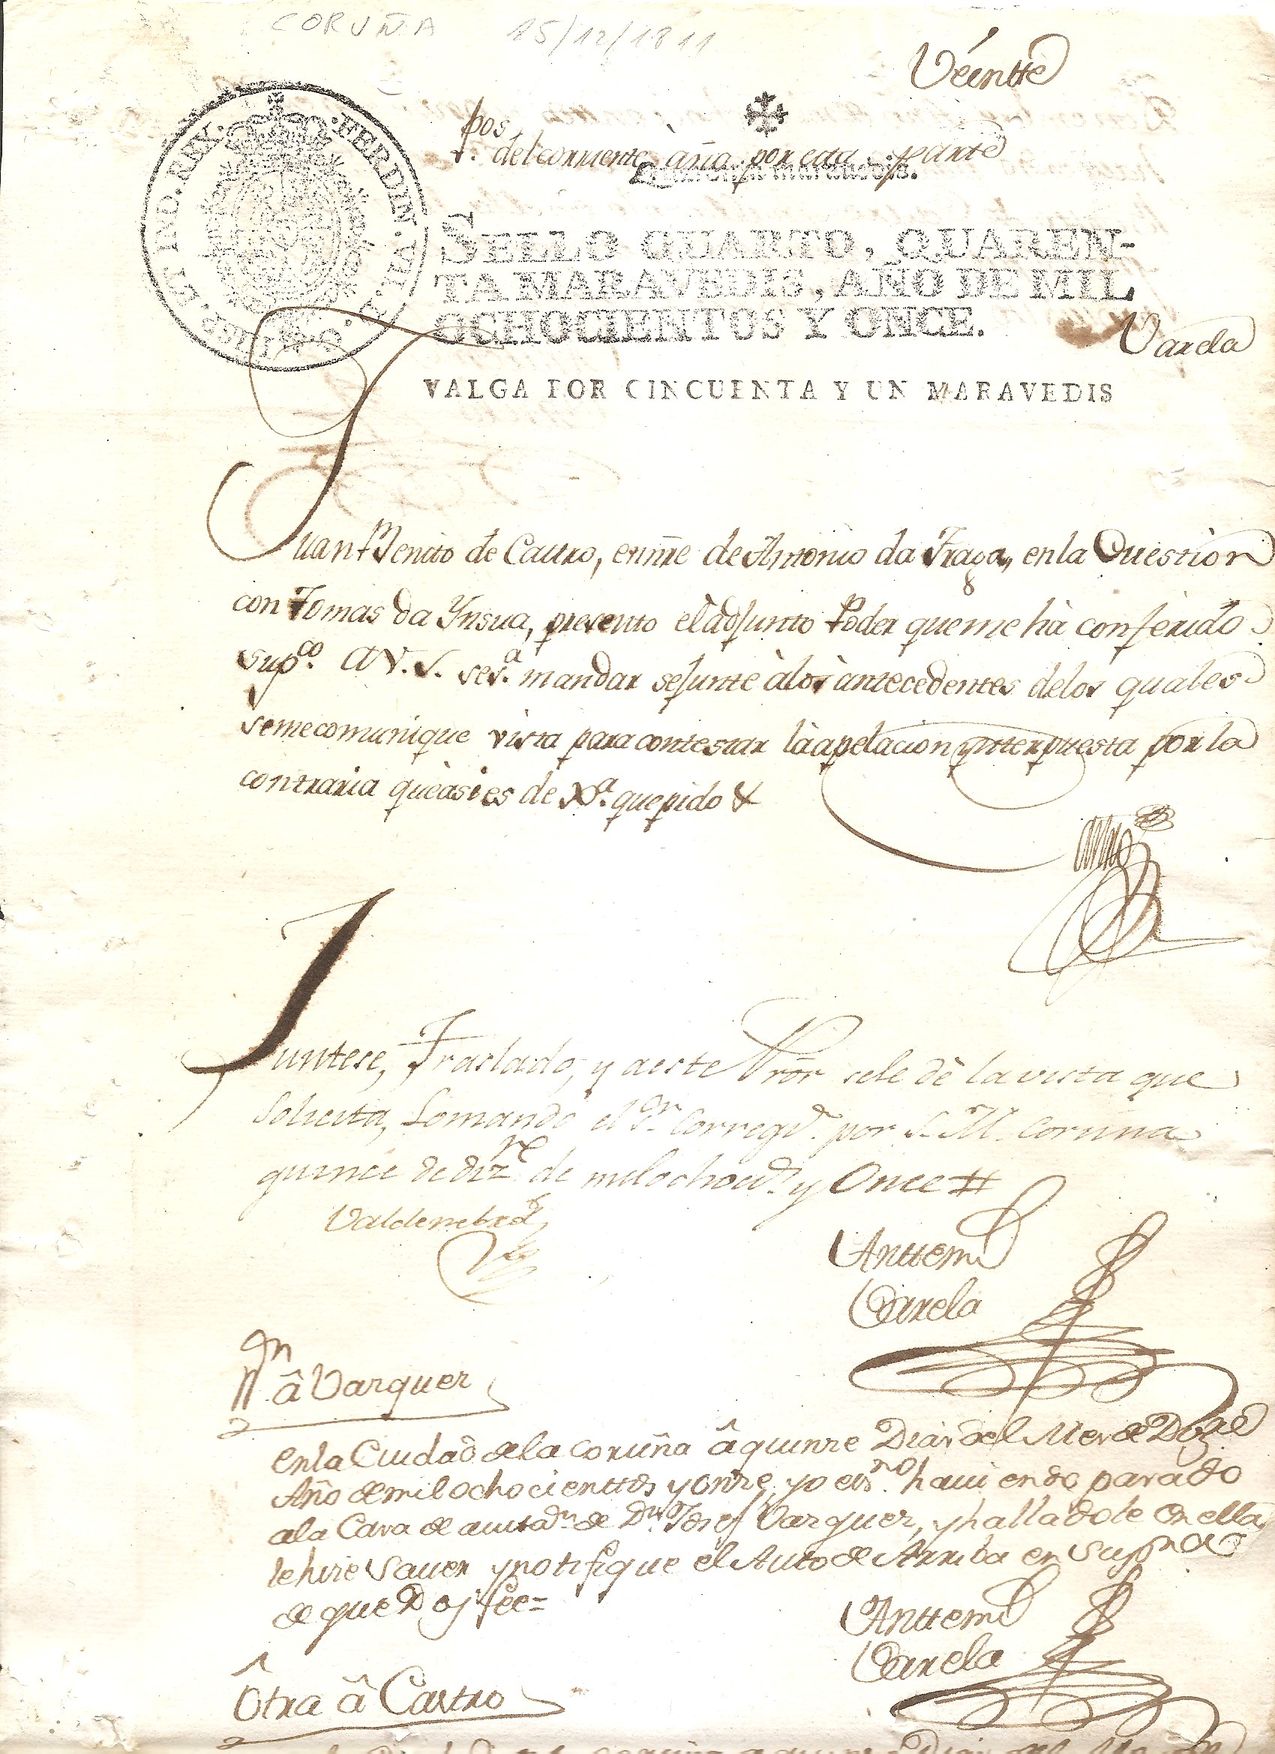 CORUÑA 15/12/1811
Veintte
pos
del corriente año por esta parte
Quarenta maravedis.
SELLO QUARTO, QUAREN-
TA MARAVEDIS, AÑO DE MIL
OCHOCIENTOS Y ONCE.
Varela
VALGA POR CINCUENTA Y UN MARAVEDIS
FERDIN. VII. D. G. HISP. ET IND. REX.
Juan Benito de Castro, en nre de Antonio da Fraga, en la Question
con Tomas da Ynsua, presento el adjunto Poder que me hà conferido
supco. A V. S. se sa. mandar se junte à los àntecedentes de los quales
se me comunique vista para contestar la àpelacion ynterpuesta por la
contraria què àsi es de Xa. que pido &
Juntese, Traslado, y a este Pror se le dè la vista que
Solicita, Lo mando el Sr. Corregr. por S. M. Coruña
quince de Dizre de mil ochocs. y Once #
Valdenebro
Anttemi
Varela
Nn â Vazquez
en la Ciudad de la coruña â quinze Dias del Mes de Dize
Año de mil ochocienttos y onze, yo esno. haviendo pasado
a la Casa de avitan. de Dn. Josef Vazquez, y halladole en ella
le hize Saver y notifique el Auto de Arriba en Supna
de que Doy fee =
Anttemi
Varela
Otra â Castro